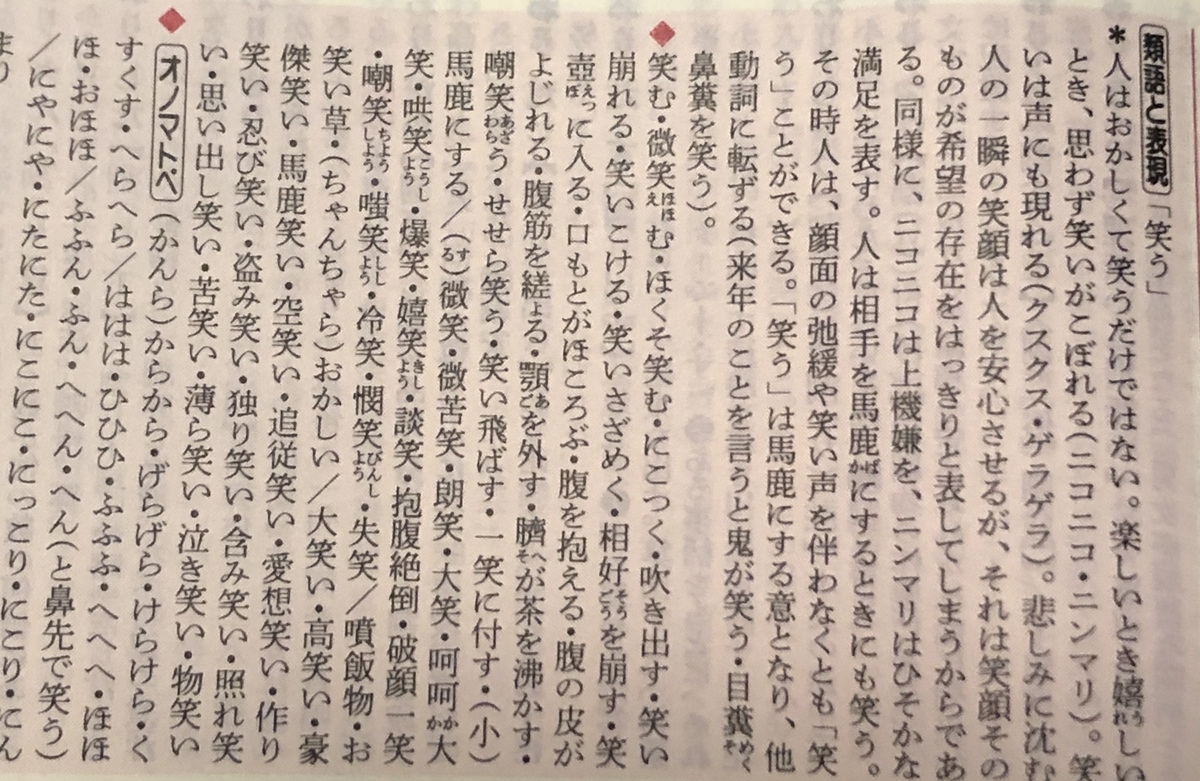 類語と表現「笑う」
*人はおかしくて笑うだけではない。楽しいとき嬉しい
とき、思わず笑いがこぼれる(ニコニコ・ニンマリ)。笑
いは声にも現れる(クスクス・ゲラゲラ)。悲しみに沈む
人の一瞬の笑顔は人を安心させるが、それは笑顔その
ものが希望の存在をはっきりと表してしまうからであ
る。同様に、ニコニコは上機嫌を、ニンマリはひそかな
満足を表す。人は相手を馬鹿にするときにも笑う。
その時人は、顔面の弛緩や笑い声を伴わなくとも「笑
う」ことができる。「笑う」は馬鹿にする意となり、他
動詞に転ずる(来年のことを言うと鬼が笑う・目糞
鼻糞を笑う)。
◆笑む・微笑む・ほくそ笑む・にこつく・吹き出す・笑い
崩れる・笑いこける・笑いさざめく・相好を崩す・笑
壺に入る・口もとがほころぶ・腹を抱える・腹の皮が
よじれる・腹筋を縒る・顎を外す・臍が茶を沸かす・
嘲笑う・せせら笑う・笑い飛ばす・一笑に付す・(小)
馬鹿にする/(する)微笑・微苦笑・朗笑・大笑・呵呵大
笑・哄笑・爆笑・嬉笑・談笑・抱腹絶倒・破顔一笑
・嘲笑・嗤笑・冷笑・憫笑・失笑/噴飯物・お
笑い草・(ちゃんちゃら)おかしい/大笑い・高笑い・豪
傑笑い・馬鹿笑い・空笑い・追従笑い・愛想笑い・作り
笑い・忍び笑い・盗み笑い・独り笑い・含み笑い・照れ笑
い・思い出し笑い・苦笑い・薄ら笑い・泣き笑い・物笑い
◆オノマトペ(かんら)からから・げらげら・けらけら・く
すくす・へらへら/ははは・ひひひ・ふふふ・へへへ・ほほ
ほ・おほほ/ふふん・ふん・へへん・へん(と鼻先で笑う)
/にやにや・にたにた・にこにこ・にっこり・にこり・にん
まり